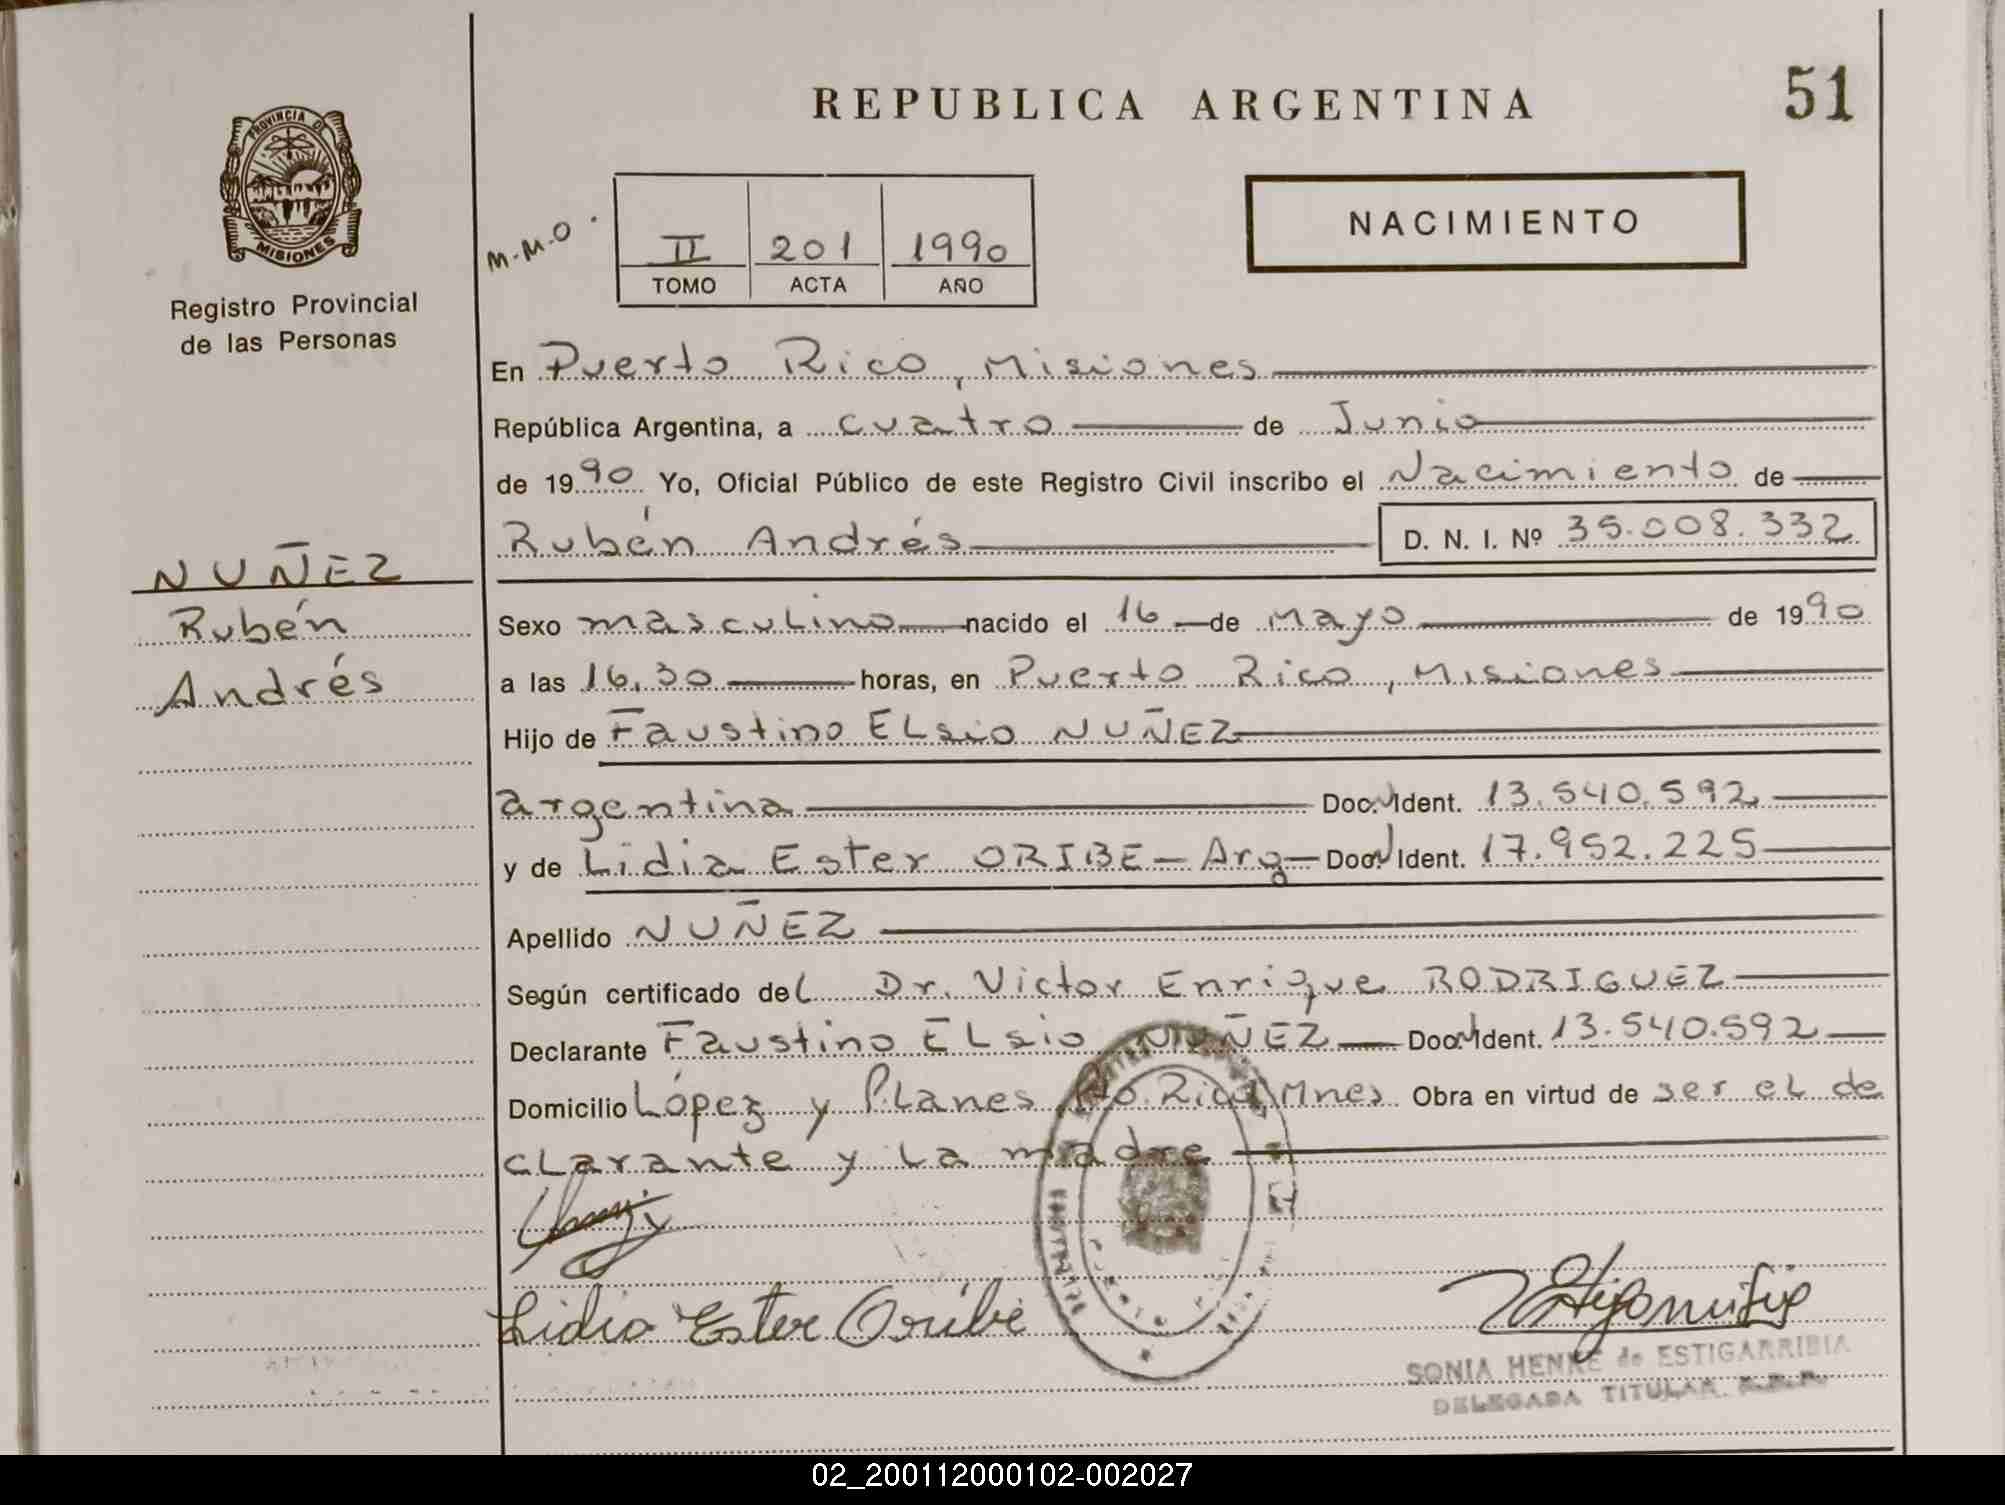 REPUBLICA ARGENTINA
51
PROVINCIA DE
MISIONES
Registro Provincial
de las Personas
M.M.O.
II 201 1990
TOMO ACTA AÑO
NACIMIENTO
En Puerto Rico, Misiones
República Argentina, a cuatro de Junio
de 1990 Yo, Oficial Público de este Registro Civil inscribo el Nacimiento de
Rubén Andrés D. N. I. Nº 35.008.332
NUÑEZ
Rubén
Andrés
Sexo masculino nacido el 16 de Mayo de 1990
a las 16,30 horas, en Puerto Rico, Misiones
Hijo de Faustino ELsio NUÑEZ
argentina Doc. Ident. 13.540.592
y de Lidia Ester ORIBE - Arg - Doc. Ident. 17.952.225
Apellido NUÑEZ
Según certificado del Dr. Victor Enrique RODRIGUEZ
Declarante Faustino ELsio NUÑEZ Doc. Ident. 13.540.592
Domicilio López y Planes Pto. Rico, Mnes Obra en virtud de ser el de
clarante y la madre
Lidia Ester Oribe
SONIA HENKE de ESTIGARRIBIA
DELEGADA TITULAR
02_200112000102-002027